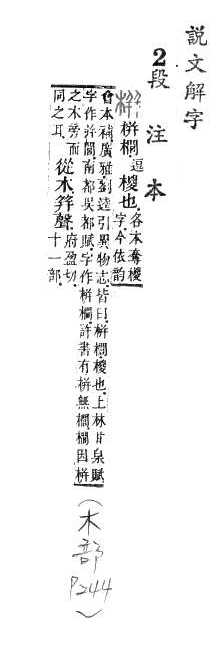 説文解字
2段注本
栟 栟櫚逗椶也各本奪椶字今依韵
會本補廣雅劉逵引異物志皆曰栟櫚椶也上林甘泉賦
字作幷閭南都吳都賦字作栟櫚許書有栟無櫚櫚因栟
之木旁而同之耳從木幷聲府盈切十一部
(木部P244)